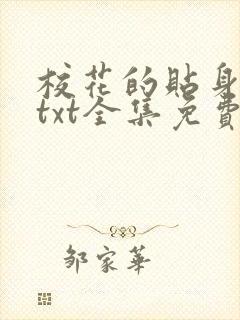 校花的貼身
txt全集免費
邹家華